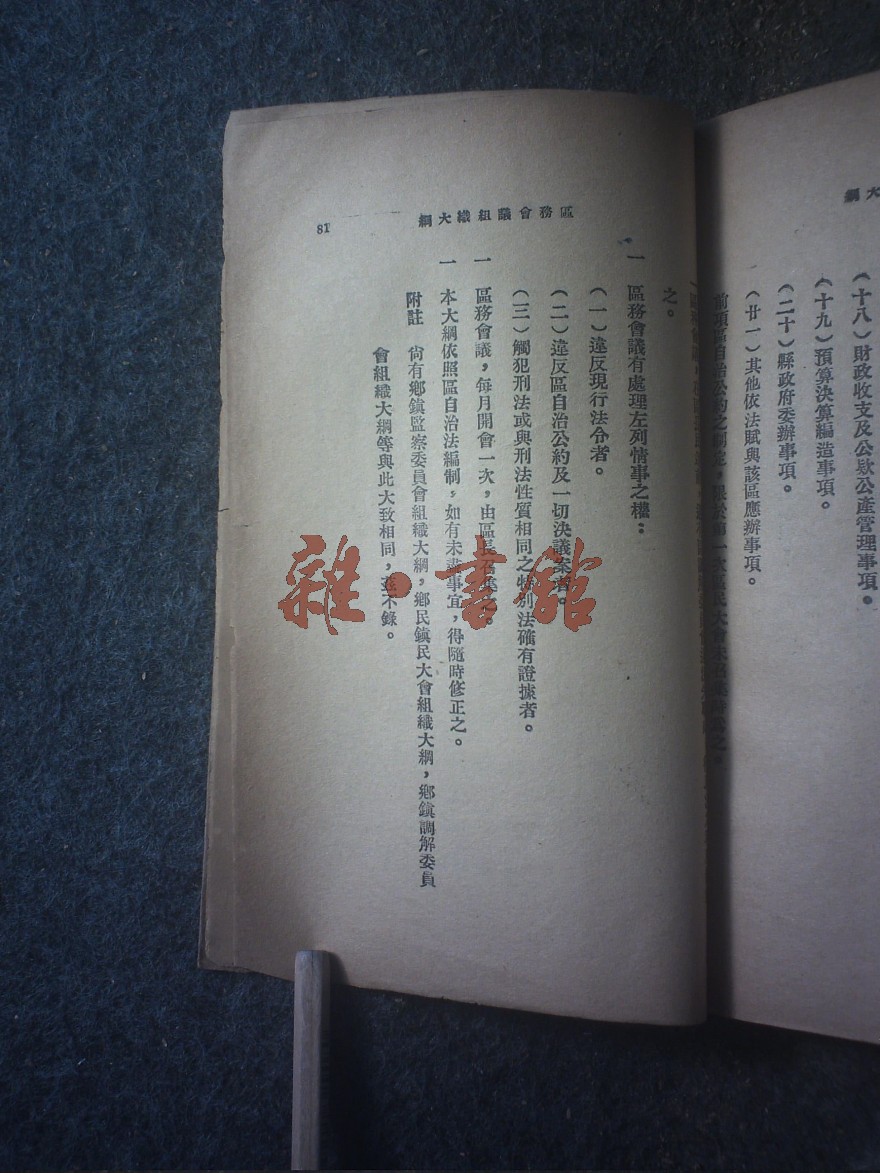 大綱
（十八）財政收支及公欵公產管理事項。
（十九）預算決算編造事項。
（二十）縣政府委辦事項。
（廿一）其他依法賦與該區應辦事項。
前項區自治公約之制定，
區務會議組織大綱
81
之。
一　區務會議有處理左列情事之權：
（一）違反現行法令者。
（二）違反區自治公約及一切決議案者。
（三）觸犯刑法或與刑法性質相同之特別法確有證據者。
一　區務會議，每月開會一次，由區長召集之。
一　本大綱依照區自治法編制，如有未盡事宜，得隨時修正之。
附註　尙有鄉鎭監察委員會組織大綱，鄉民鎭民大會組織大綱，鄉鎭調解委員
會組織大綱等與此大致相同，並不錄。
雜·書館